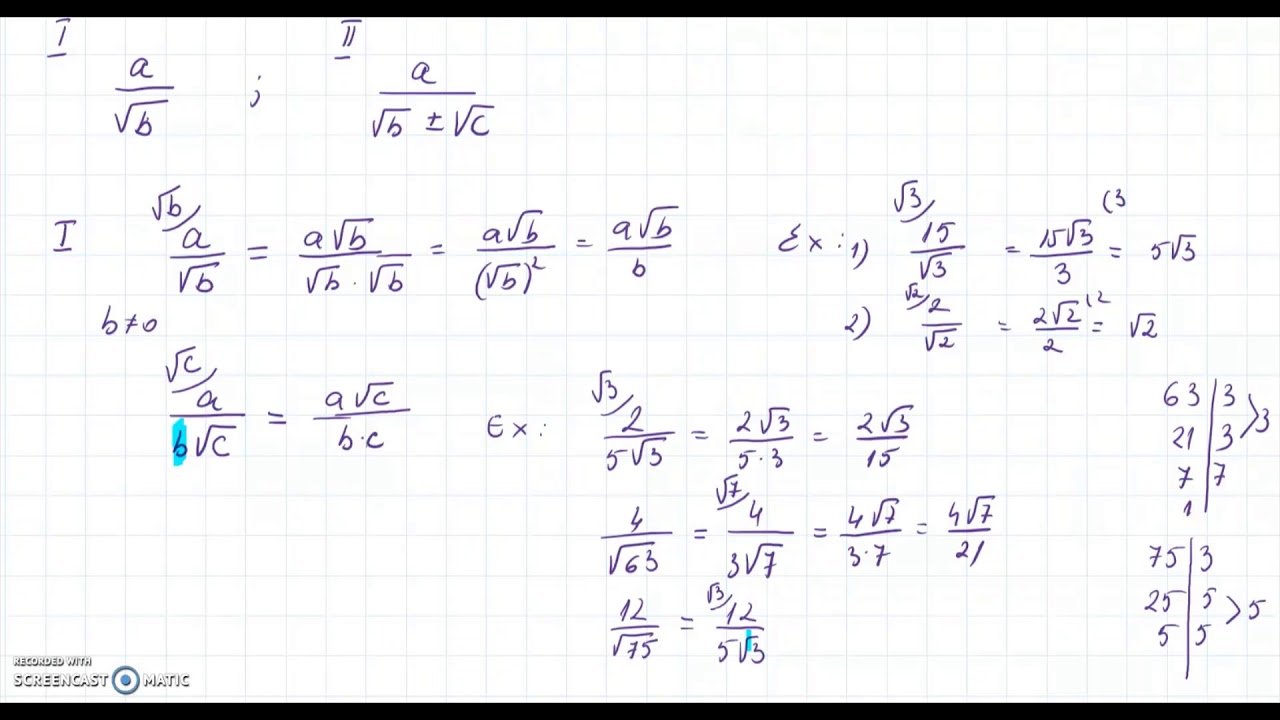 I II
a/√b ; a/(√b ± √c)
I √b/ a/√b = a√b/(√b · √b) = a√b/(√b)² = a√b/b
b≠0
Ex: 1) √3/ 15/√3 = 15√3/3 (3 = 5√3
2) √2/ 2/√2 = 2√2/2 (2 = √2
√c/ a/(b√c) = a√c/(b·c)
Ex: √3/ 2/(5√3) = 2√3/(5·3) = 2√3/15
4/√63 = √7/ 4/(3√7) = 4√7/(3·7) = 4√7/21
12/√75 = √3/ 12/(5√3)
63 | 3
21 | 3 > 3
7 | 7
1
75 | 3
25 | 5
5 | 5 > 5
RECORDED WITH
SCREENCAST MATIC